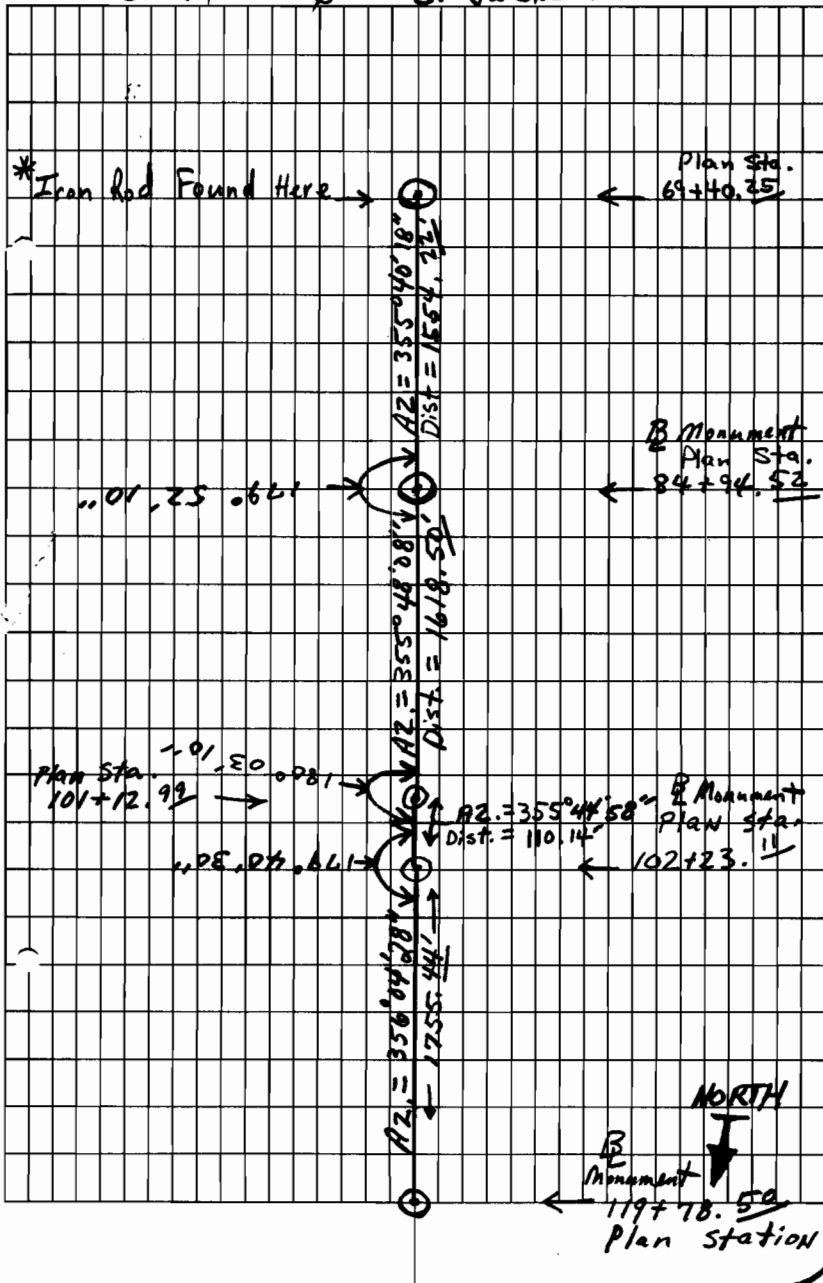 Plan Sta.
69+40.25
*Iron Rod Found Here
AZ = 355°40'18"
Dist = 1554.22'
BL Monument
Plan Sta.
84+94.52
179° 52' 10"
AZ. = 355°48'08"
Dist. = 1618.50'
Plan Sta.
101+12.99
180° 03' 10"
AZ. = 355°44'58"
Dist. = 110.14'
BL Monument
Plan Sta.
102+23.11
179° 40' 30"
AZ. = 356°04'28"
1755.44'
NORTH
BL
Monument
119+78.50
Plan Station